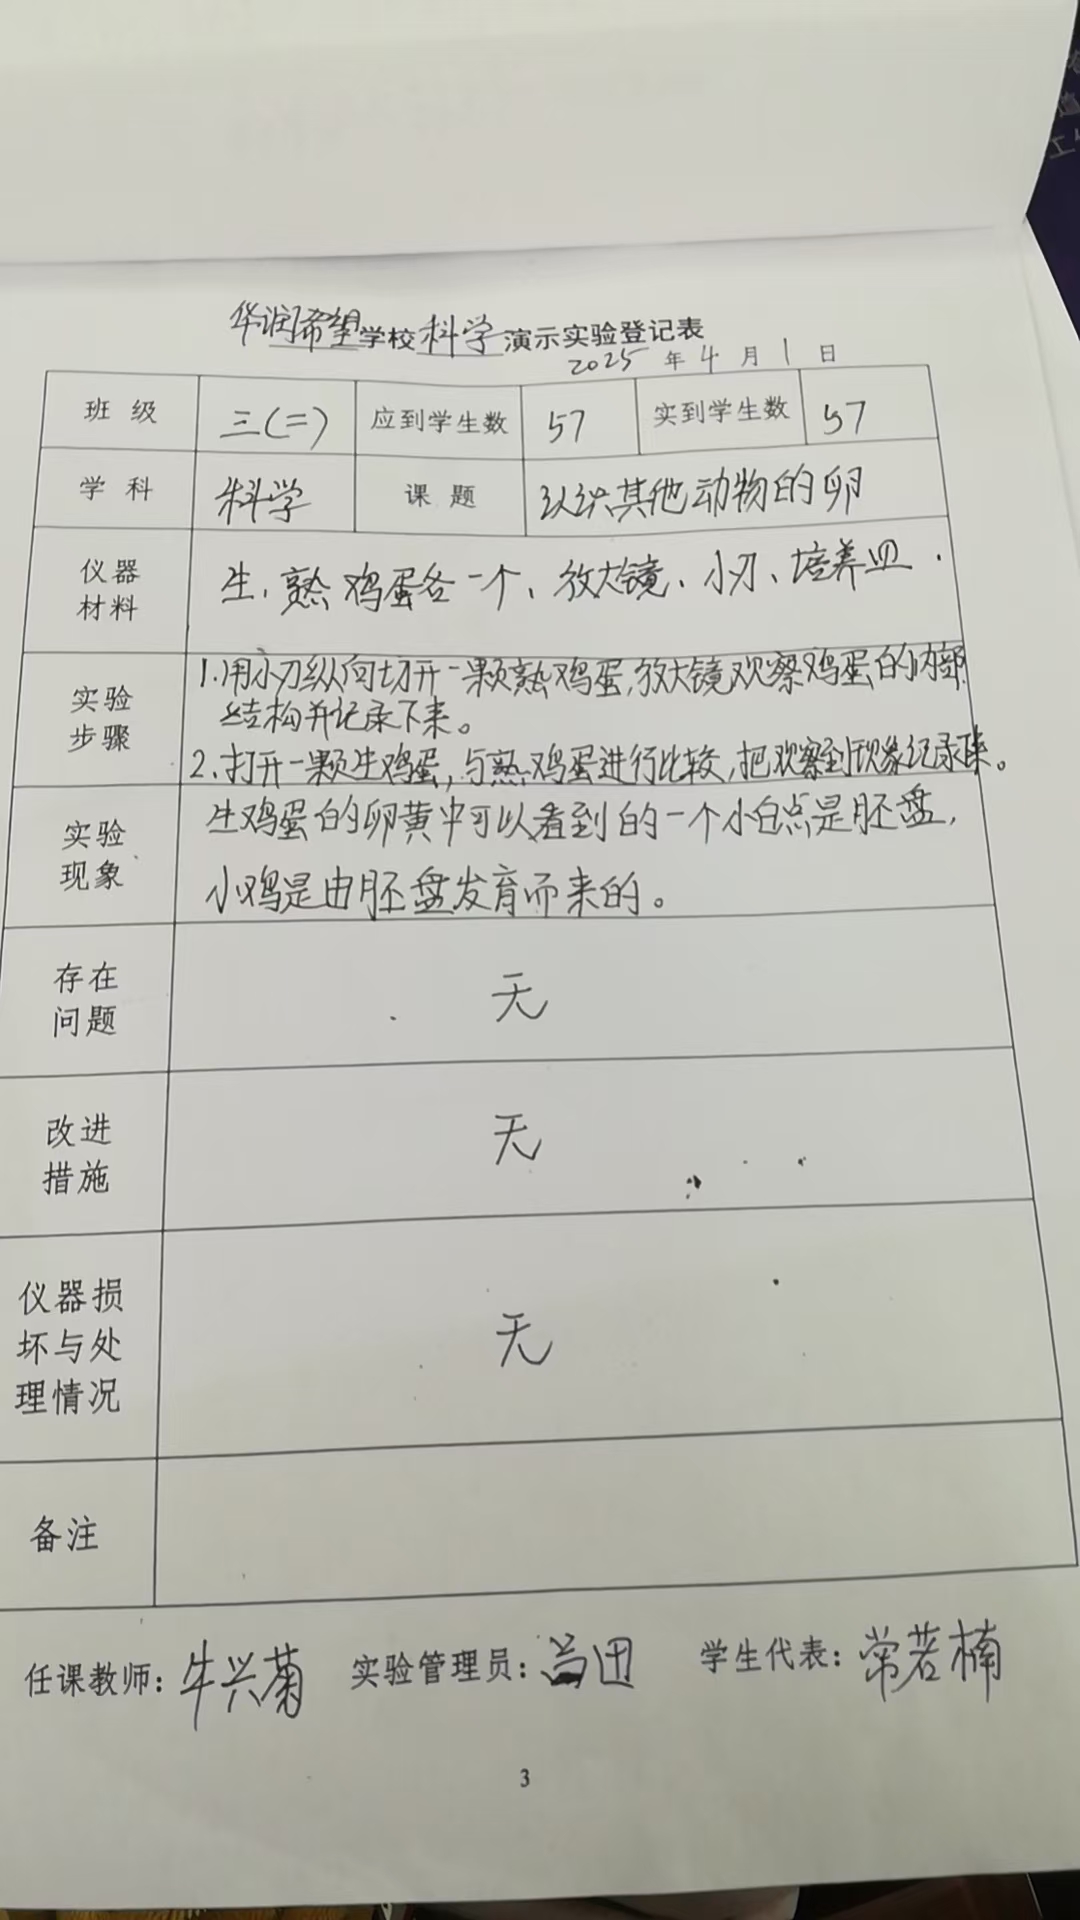 华润希望学校科学演示实验登记表
2025年4月1日
班级 三(二) 应到学生数 57 实到学生数 57
学科 科学 课题 认识其他动物的卵
仪器
材料
生、熟鸡蛋各一个、放大镜、小刀、培养皿.
实验
步骤
1.用小刀纵向切开一颗熟鸡蛋,放大镜观察鸡蛋的内部
结构并记录下来。
2.打开一颗生鸡蛋,与熟鸡蛋进行比较,把观察到现象记录下来。
实验
现象
生鸡蛋的卵黄中可以看到的一个小白点是胚盘,
小鸡是由胚盘发育而来的。
存在
问题
无
改进
措施
无
仪器损
坏与处
理情况
无
备注
任课教师:牛兴菊 实验管理员: 学生代表:常若楠
3